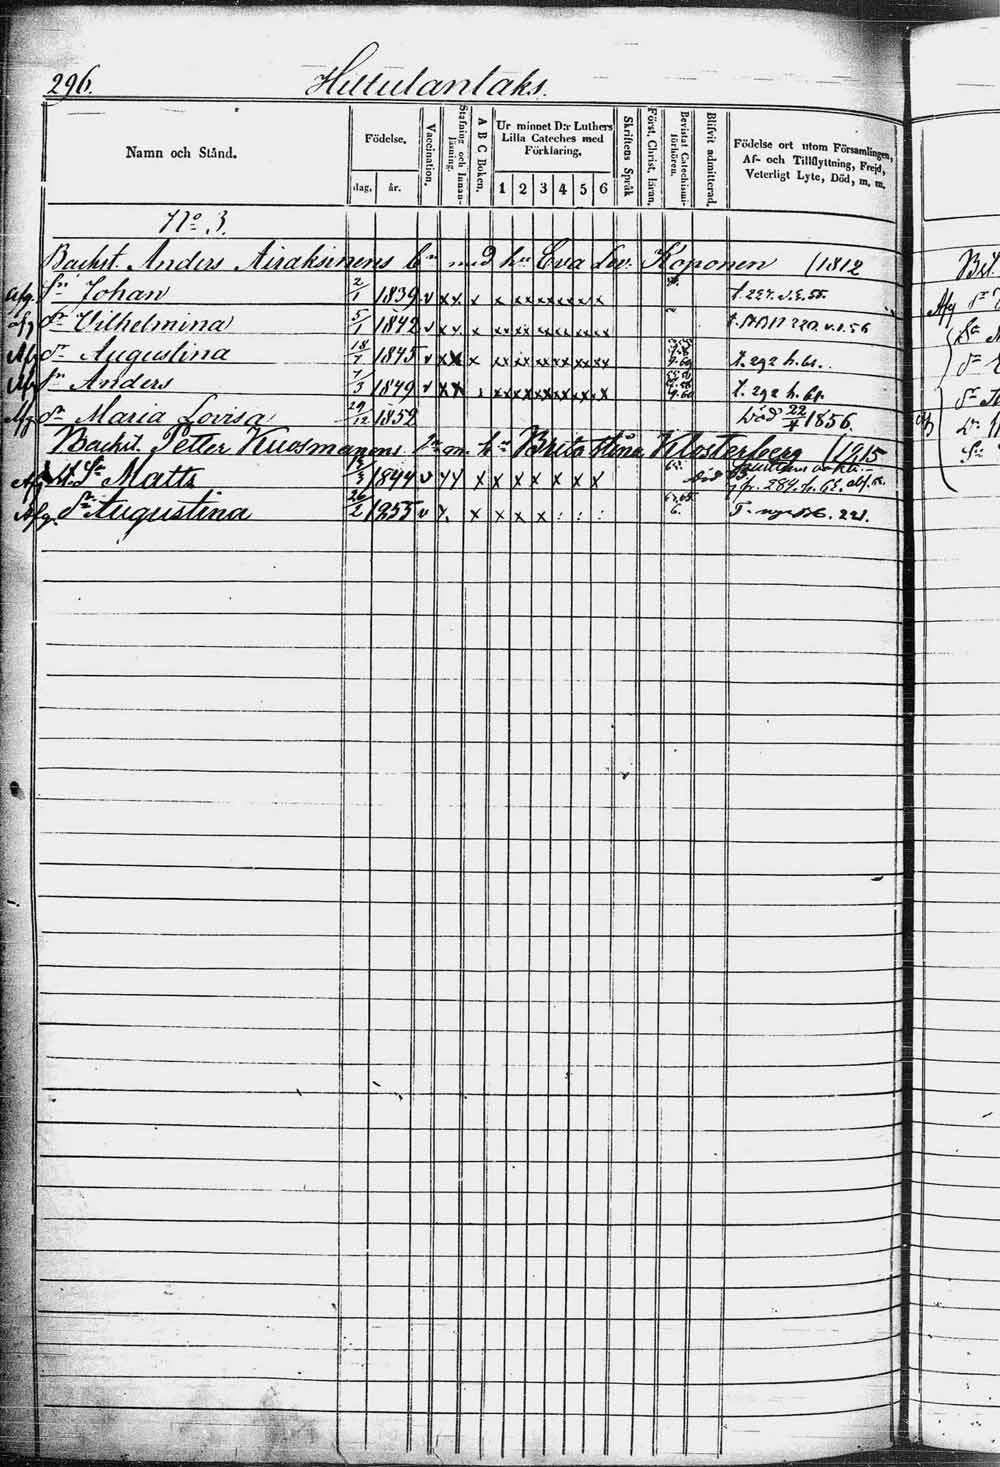 296.
Hittulanlaks.
Namn och Stånd.
Födelse.
dag. år.
Vaccination.
Stafning och Innan-läsning.
A B C Boken.
Ur minnet D:r Luthers
Lilla Cateches med
Förklaring.
1 2 3 4 5 6
Skriftens Språk
Först. Christ. läran.
Bevistat Catechismi-förhören.
Blifvit admitterad.
Födelse ort utom Församlingen,
Af- och Tillflyttning, Frejd,
Veterligt Lyte, Död, m. m.
No 3.
Backst. Anders Airaksinens bn med hu Eva Lov: Koponen /1812
Afg. Sn Johan 2/1 1839 v x x x x x x x x x
Afg Dr Vilhelmina 5/1 1842 v x x x x x x x x x
Afg Dr Augustina 18/7 1845 v x x x x x x x x x f. 292 h. 61.
Afg Sn Anders 7/3 1849 v x x x x x x x x f. 292 h. 61.
Afg Dr Maria Lovisa 29/12 1852 Död 22/4 1856.
Backst. Petter Kuosmanens bn m. hu Brita Stina Klosterberg /1915
Afg Sn Matts 1844 v x x x x x x x x x
Afg. Dr Augustina 26/2 1855 v x x x x x : : :